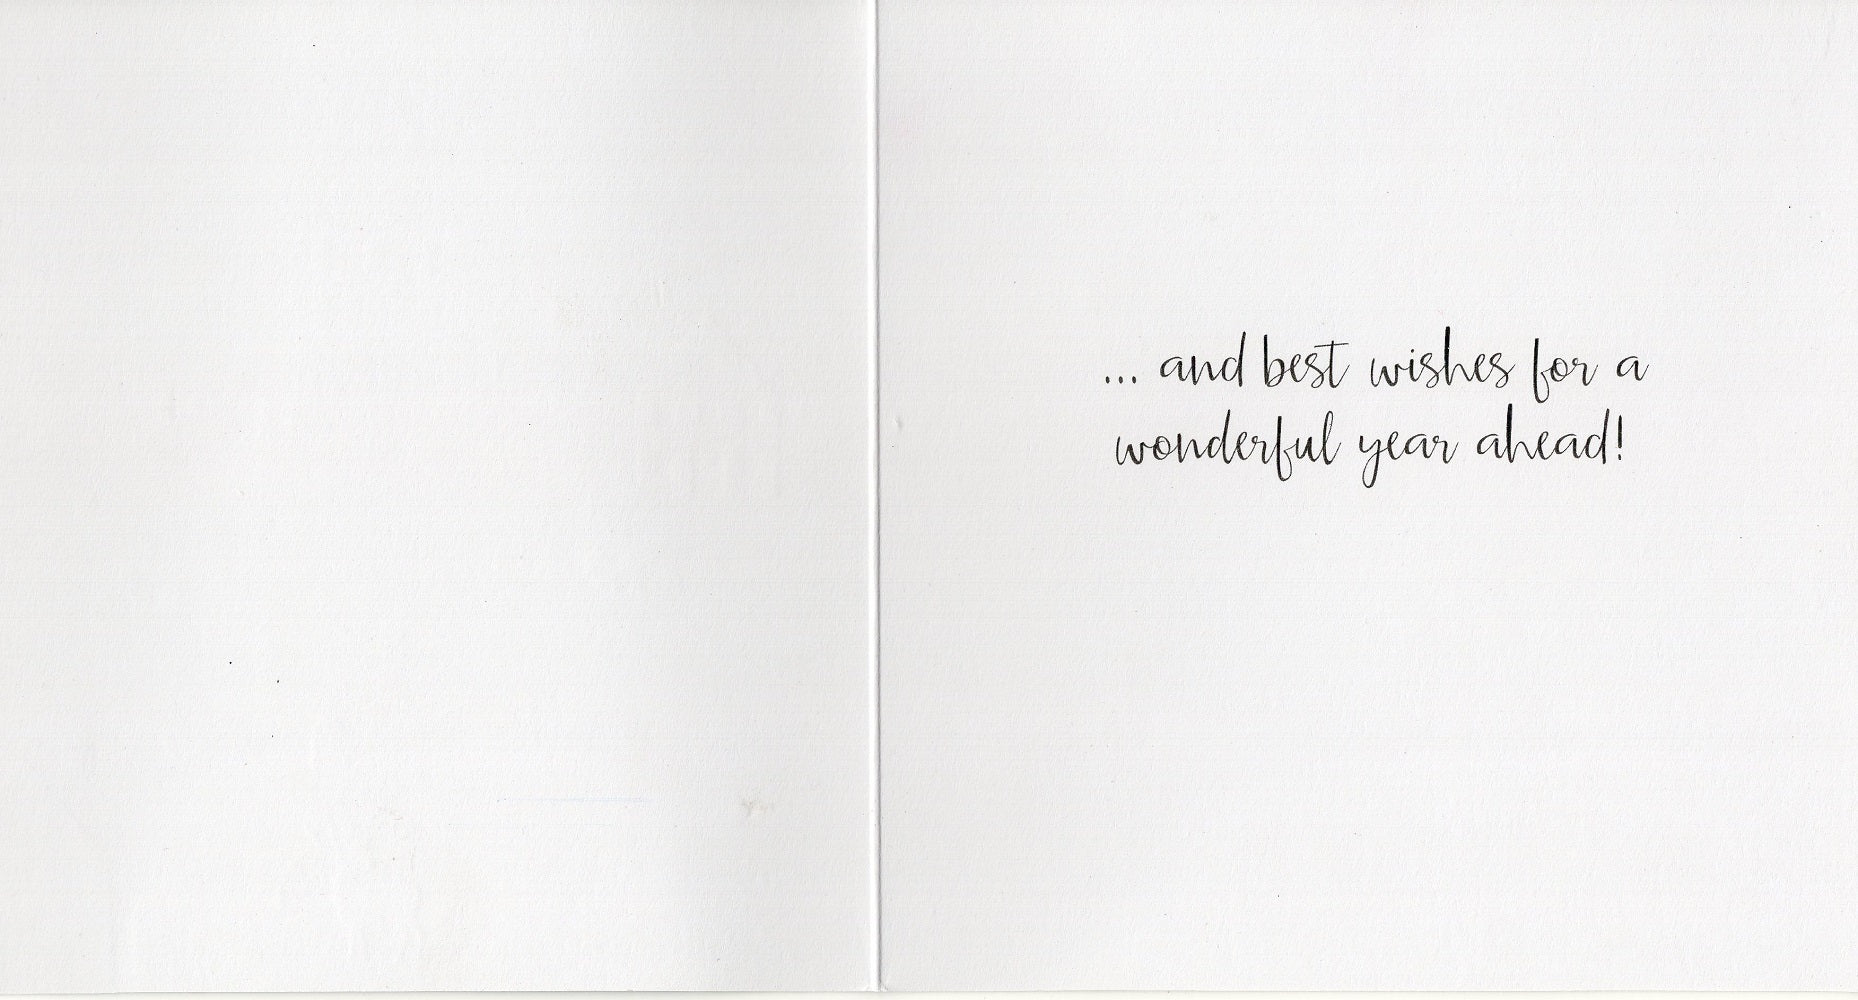 ... and best wishes for a
wonderful year ahead!